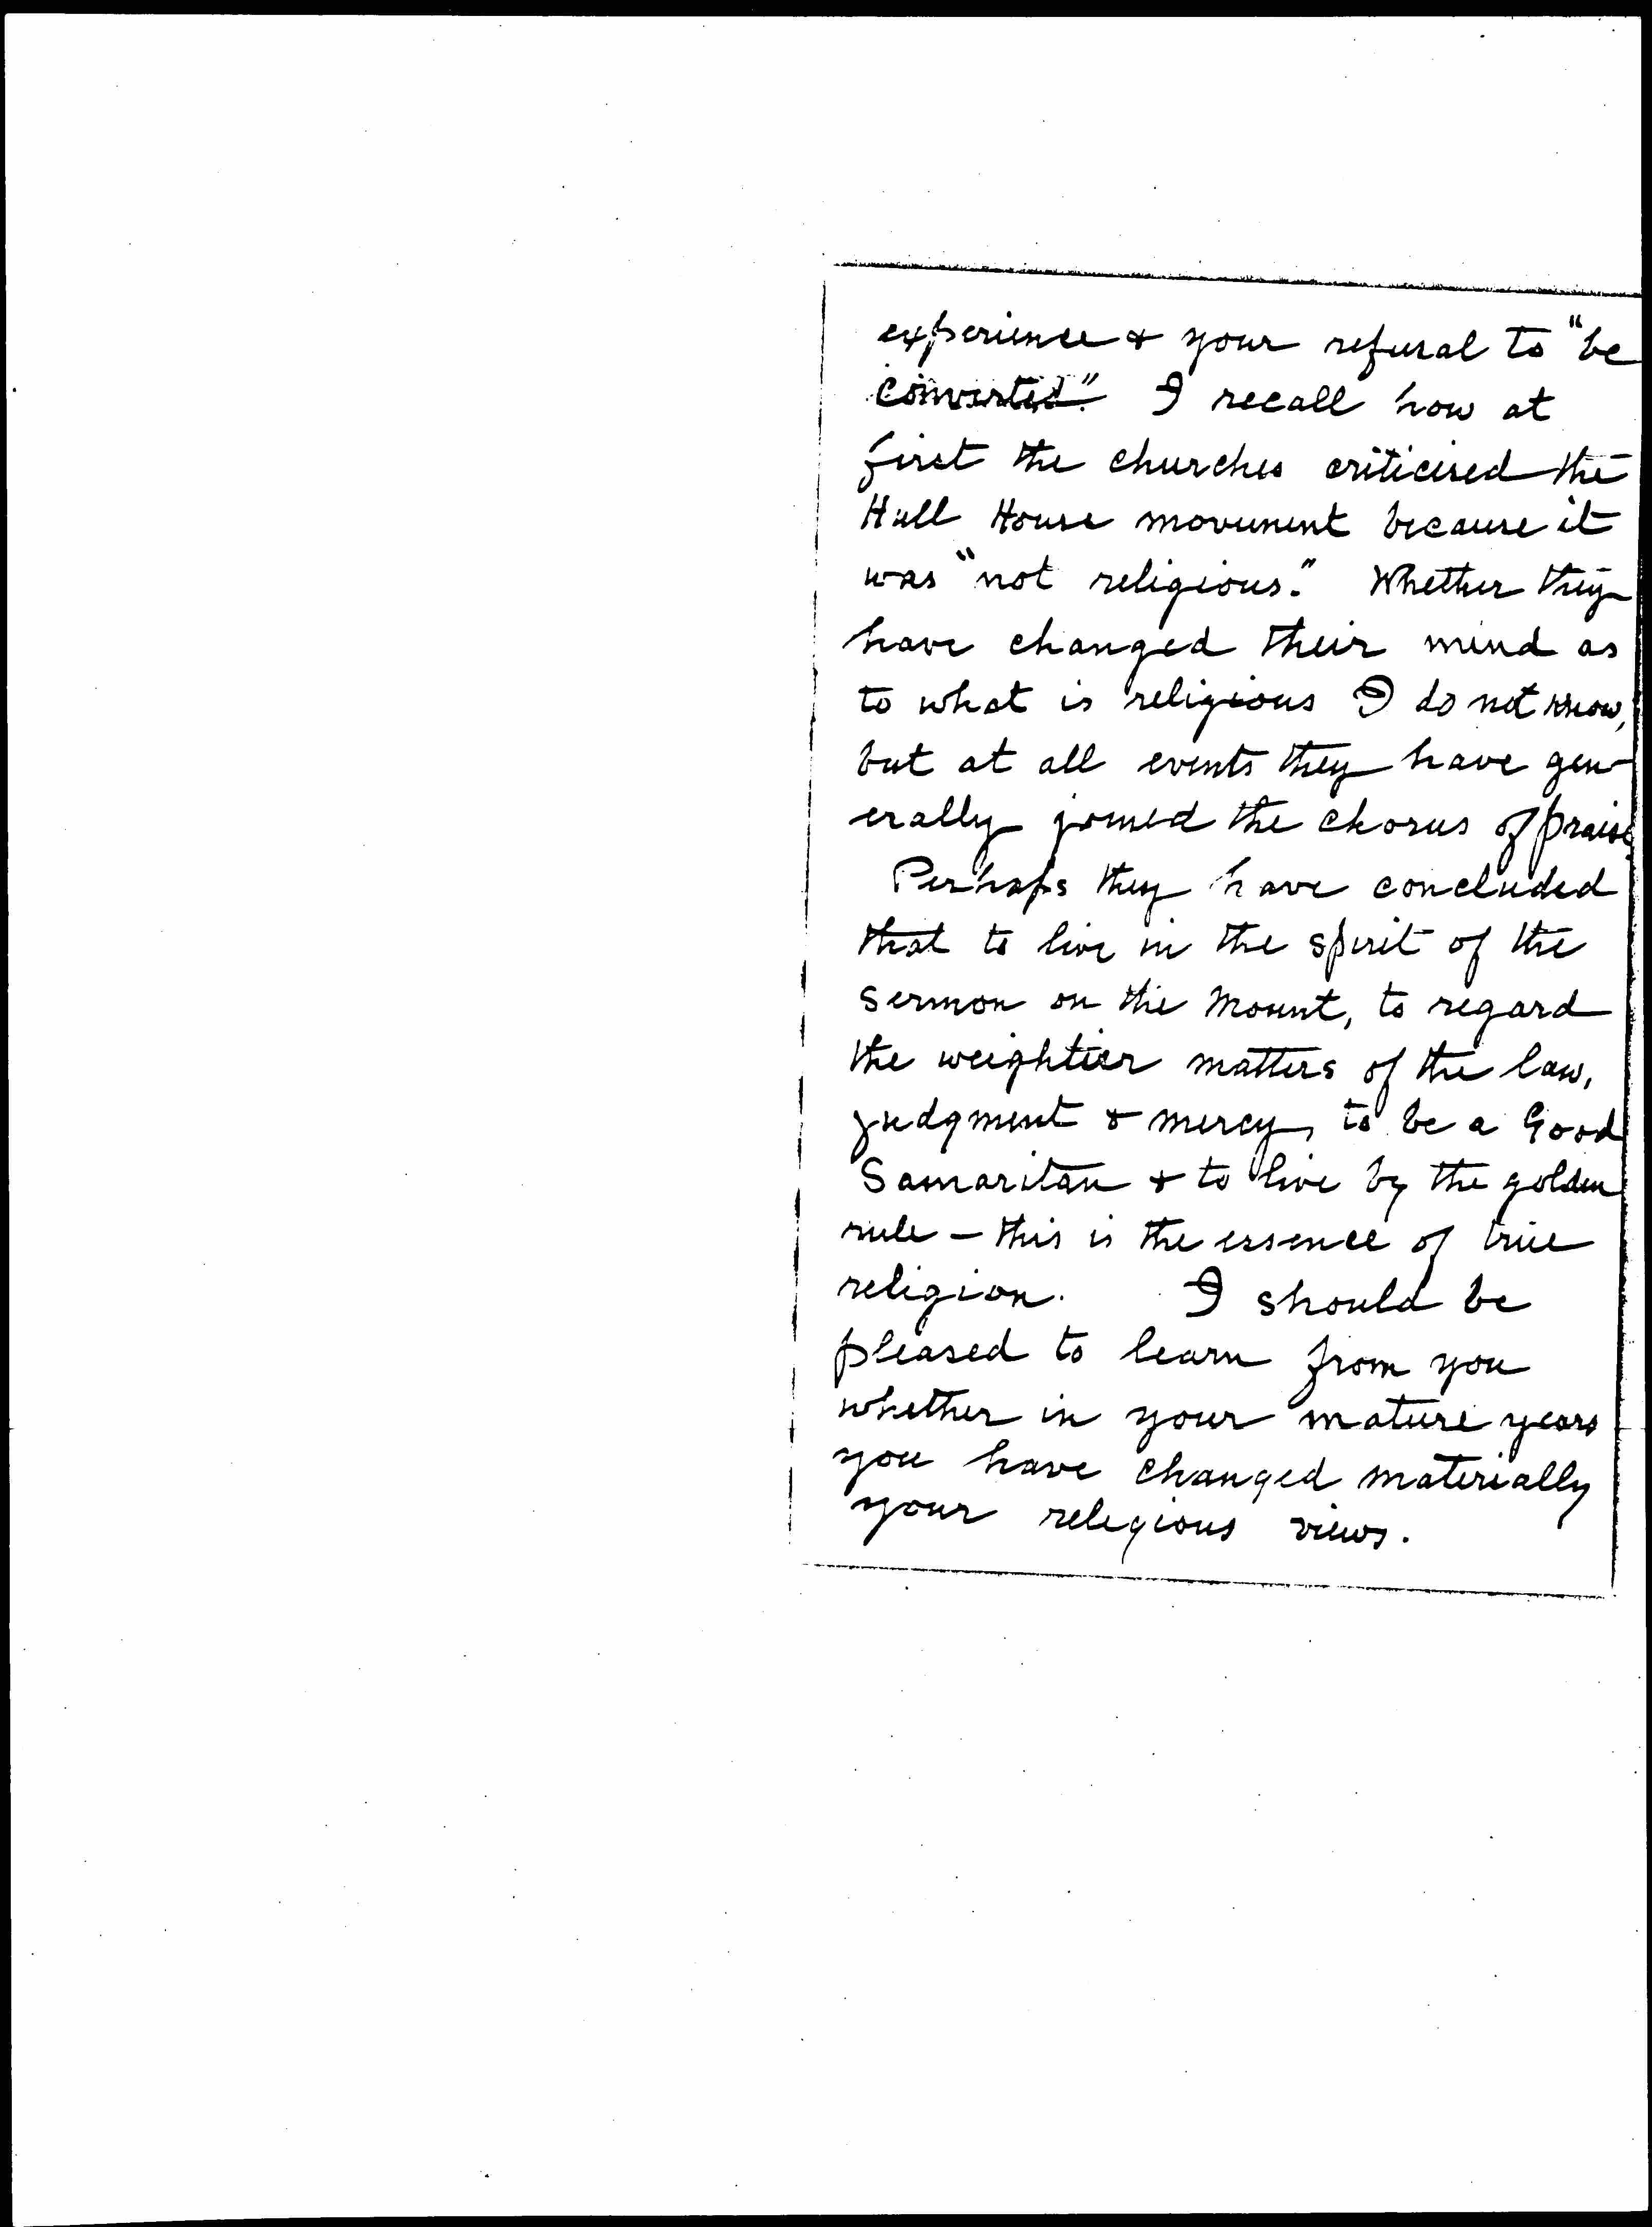 experience & your refusal to "be
converted." I recall how at
first the churches criticised the
Hull House movement because it
was "not religious." Whether they
have changed their mind as
to what is religious I do not know,
but at all events they have gen-
erally joined the chorus of praise.
Perhaps they have concluded
that to live in the spirit of the
Sermon on the Mount, to regard
the weightier matters of the law,
judgment & mercy, to be a Good
Samaritan & to live by the golden
rule – this is the essence of true
religion. I should be
pleased to learn from you
whether in your mature years
you have changed materially
your religious views.